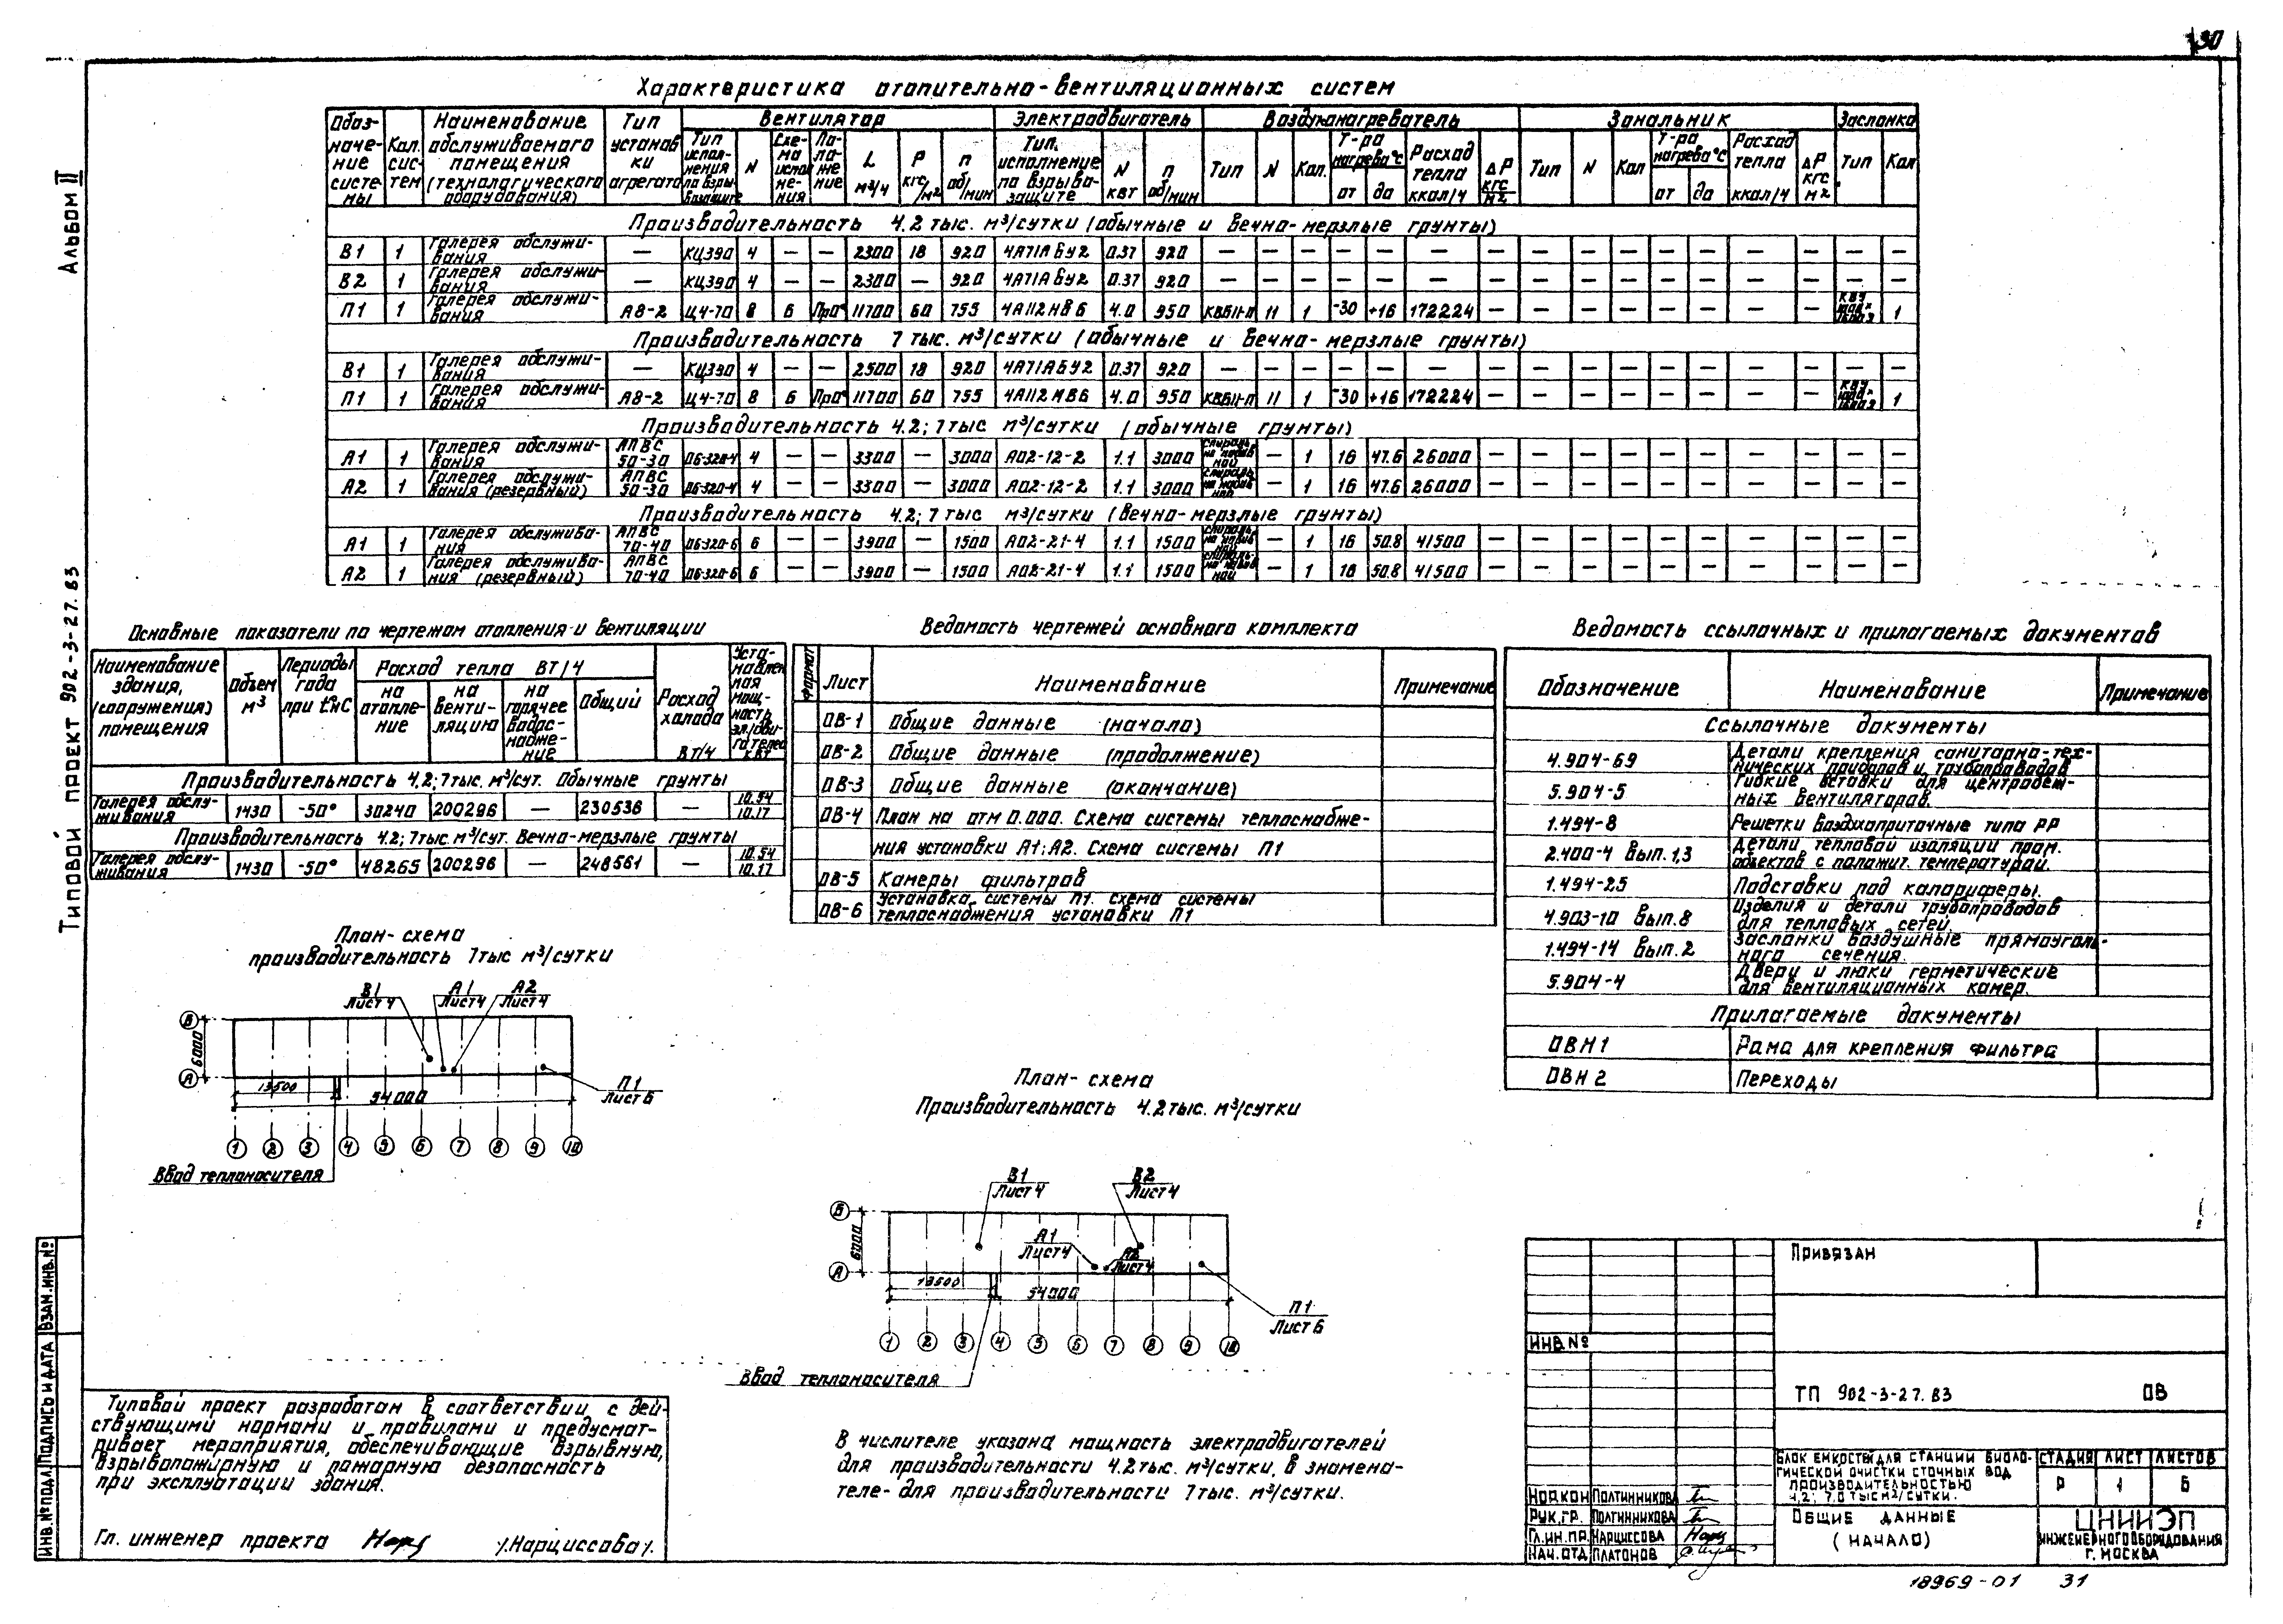 30
Альбом II
Типовой проект 902-3-27.83
Характеристика отопительно-вентиляционных систем
Обозначение системы | Кол. систем | Наименование обслуживаемого помещения (технологического оборудования) | Тип установки агрегата | Вентилятор | Электродвигатель | Воздухонагреватель | Зональник | Заслонка
Тип исполнения по взрывозащите | N | Схема исполнения | Положение | L м³/ч | P кгс/м² | n об/мин | Тип, исполнение по взрывозащите | N квт | n об/мин | Тип | N | Кол. | Т-ра нагрева °С от до | Расход тепла ккал/ч | ΔP кгс/м² | Тип | N | Кол | Т-ра нагрева °С от до | Расход тепла ккал/ч | ΔP кгс/м² | Тип | Кол
Производительность 4.2 тыс. м³/сутки (обычные и вечно-мерзлые грунты)
В1 1 Галерея обслуживания — КЦ390 4 — — 2300 18 920 4А71А6У2 0.37 920 — — — — — — — — — — — — — — — —
В2 1 Галерея обслуживания — КЦ390 4 — — 2300 — 920 4А71А6У2 0.37 920 — — — — — — — — — — — — — — — —
П1 1 Галерея обслуживания А8-2 Ц4-70 8 6 Пр0° 11700 60 755 4А112МВ6 4.0 950 КВБ11-П 11 1 -30 +16 172224 — — — — — — — — 1
Производительность 7 тыс. м³/сутки (обычные и вечно-мерзлые грунты)
В1 1 Галерея обслуживания — КЦ390 4 — — 2500 18 920 4А71А6У2 0.37 920 — — — — — — — — — — — — — — — —
П1 1 Галерея обслуживания А8-2 Ц4-70 8 6 Пр0° 11700 60 755 4А112МВ6 4.0 950 КВБ11-П 11 1 -30 +16 172224 — — — — — — — — 1
Производительность 4.2; 7 тыс м³/сутки (обычные грунты)
А1 1 Галерея обслуживания АПВС 50-30 06-320-4 4 — — 3300 — 3000 А02-12-2 1.1 3000 — 1 16 47.6 26000 — — — — — — — — — —
А2 1 Галерея обслуживания (резервный) АПВС 50-30 06-320-4 4 — — 3300 — 3000 А02-12-2 1.1 3000 — 1 16 47.6 26000 — — — — — — — — — —
Производительность 4.2; 7 тыс м³/сутки (вечно-мерзлые грунты)
А1 1 Галерея обслуживания АПВС 70-40 06-320-6 6 — — 3900 — 1500 А02-21-4 1.1 1500 — 1 16 50.8 41500 — — — — — — — — — —
А2 1 Галерея обслуживания (резервный) АПВС 70-40 06-320-6 6 — — 3900 — 1500 А02-21-4 1.1 1500 — 1 16 50.8 41500 — — — — — — — — — —
Основные показатели по чертежам отопления и вентиляции
Наименование здания, (сооружения) помещения | Объем м³ | Периоды года при tн°С | Расход тепла ВТ/ч | Расход холода ВТ/ч | Установленная мощность эл/двигателей кВт
на отопление | на вентиляцию | на горячее водоснабжение | Общий
Производительность 4.2; 7 тыс. м³/сут. Обычные грунты
Галерея обслуживания 1430 -50° 30240 200296 — 230536 — 10.54 10.17
Производительность 4.2; 7 тыс. м³/сут. Вечно-мерзлые грунты
Галерея обслуживания 1430 -50° 48265 200296 — 248561 — 10.54 10.17
Ведомость чертежей основного комплекта
Формат | Лист | Наименование | Примечание
ОВ-1 Общие данные (начало)
ОВ-2 Общие данные (продолжение)
ОВ-3 Общие данные (окончание)
ОВ-4 План на отм 0.000. Схема системы теплоснабже-
ния установки А1; А2. Схема системы П1
ОВ-5 Камеры фильтров
ОВ-6 Установка системы П1. Схема системы
теплоснабжения установки П1
Ведомость ссылочных и прилагаемых документов
Обозначение | Наименование | Примечание
Ссылочные документы
4.904-69 Детали крепления санитарно-тех-
нических приборов и трубопроводов
5.904-5 Гибкие вставки для центробеж-
ных вентиляторов.
1.494-8 Решетки воздухоприточные типа РР
2.400-4 Вып. 1,3 Детали тепловой изоляции пром.
объектов с положит. температурой.
1.494-25 Подставки под калориферы.
4.903-10 Вып. 8 Изделия и детали трубопроводов
для тепловых сетей.
1.494-14 Вып. 2 Заслонки воздушные прямоуголь-
ного сечения.
5.904-4 Двери и люки герметические
для вентиляционных камер.
Прилагаемые документы
ОВН1 Рама для крепления фильтра
ОВН2 Переходы
План-схема
производительность 7 тыс м³/сутки
В1 Лист 4
А1 Лист 4
А2 Лист 4
Б
А
6000
13500
54000
П1
Лист 6
1 2 3 4 5 6 7 8 9 10
Ввод теплоносителя
План-схема
Производительность 4.2 тыс. м³/сутки
В1
Лист 4
В2
Лист 4
А1
Лист 4
А2
Лист 4
Б
А
6000
13500
54000
П1
Лист 6
1 2 3 4 5 6 7 8 9 10
Ввод теплоносителя
Типовой проект разработан в соответствии с дей-
ствующими нормами и правилами и предусмат-
ривает мероприятия, обеспечивающие взрывную,
взрывопожарную и пожарную безопасность
при эксплуатации здания.
Гл. инженер проекта /Нарциссова/.
В числителе указана мощность электродвигателей
для производительности 4.2 тыс. м³/сутки, в знамена-
теле- для производительности 7 тыс. м³/сутки.
Привязан
Инв. №
ТП 902-3-27.83 ОВ
Блок емкостей для станции биоло-
гической очистки сточных вод
производительностью
4,2; 7,0 тыс м³/сутки.
Стадия Лист Листов
Р 1 6
Общие данные
(начало)
ЦНИИЭП
инженерного оборудования
г. Москва
Нор.кон Полтинникова
Рук.гр. Полтинникова
Гл.ин.пр. Нарциссова
Нач.отд Платонов
Инв.№ подл Подпись и дата Взам.инв.№
18969-01 31